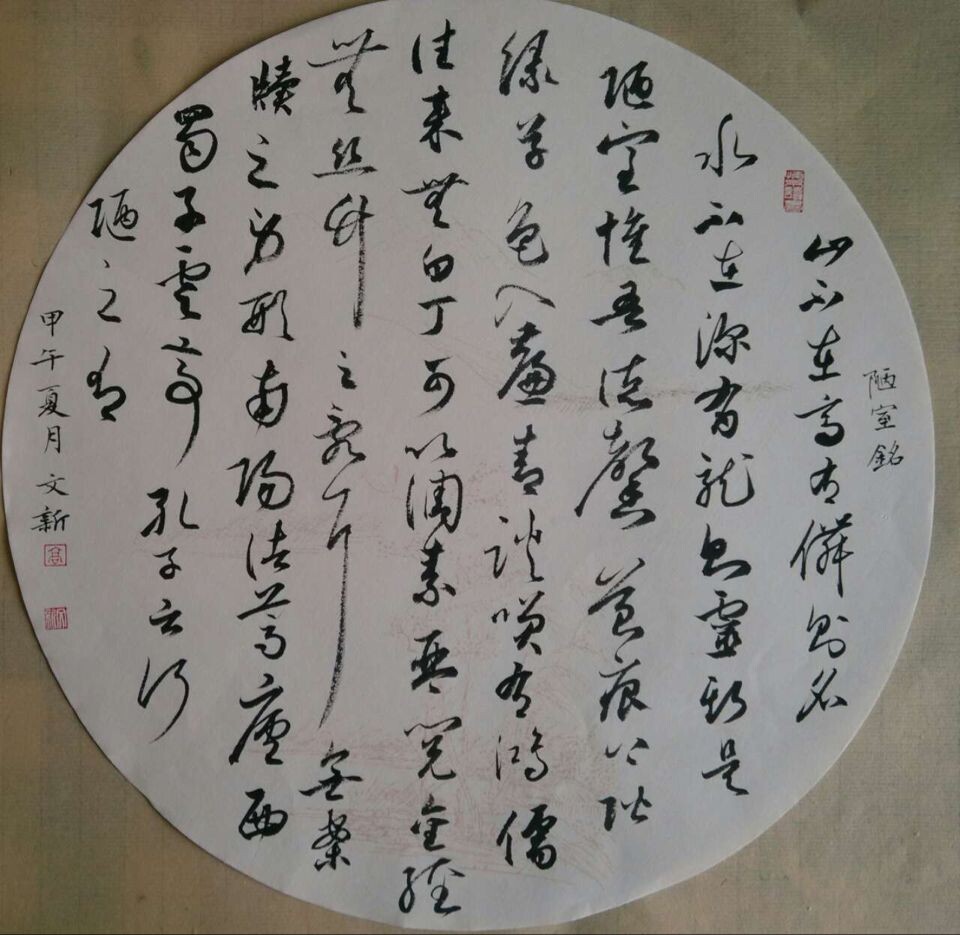 陋室銘
山不在高有僊則名
水不在深有龍則靈斯是
陋室惟吾德馨苔痕上階
綠草色入簾青談笑有鴻儒
往來無白丁可以調素琴閱金經
無絲竹之亂耳無案
牘之勞形南陽諸葛廬西
蜀子雲亭孔子云何
陋之有
甲午夏月文新
高